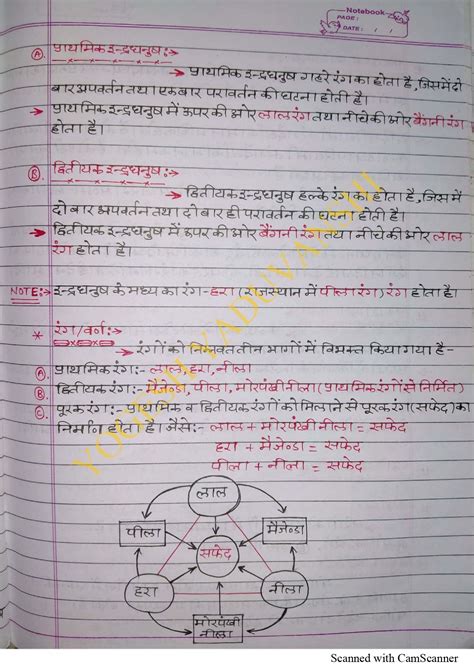 Notebook
PAGE:
DATE: / /
Ⓐ प्राथमिक इन्द्रधनुष:→
→ प्राथमिक इन्द्रधनुष गहरे रंग का होता है, जिसमें दो
बार अपवर्तन तथा एक बार परावर्तन की घटना होती है।
→ प्राथमिक इन्द्रधनुष में ऊपर की ओर लाल रंग तथा नीचे की ओर बैंगनी रंग
होता है।
Ⓑ. द्वितीयक इन्द्रधनुष:→
→ द्वितीयक इन्द्रधनुष हल्के रंग का होता है, जिस में
दो बार अपवर्तन तथा दो बार ही परावर्तन की घटना होती है।
→ द्वितीयक इन्द्रधनुष में ऊपर की ओर बैंगनी रंग तथा नीचे की ओर लाल
रंग होता है।
NOTE:→ इन्द्रधनुष के मध्य का रंग - हरा (राजस्थान में पीला रंग) रंग होता है।
* रंग/वर्ण:→
→ रंगों को निम्नवत तीन भागों में विभक्त किया गया है -
Ⓐ. प्राथमिक रंग:- लाल, हरा, नीला
Ⓑ. द्वितीयक रंग:- मैजेन्डा, पीला, मोरपंखी नीला (प्राथमिक रंगों से निर्मित)
Ⓒ. पूरक रंग:- प्राथमिक व द्वितीयक रंगों को मिलाने से पूरक रंग (सफेद) का
निर्माण होता है। जैसे:- लाल + मोरपंखी नीला = सफेद
हरा + मैजेन्डा = सफेद
पीला + नीला = सफेद
लाल
पीला
मैजेन्डा
सफेद
हरा
नीला
मोरपंखी
नीला
YOGESH YADUVANSHI
Scanned with CamScanner